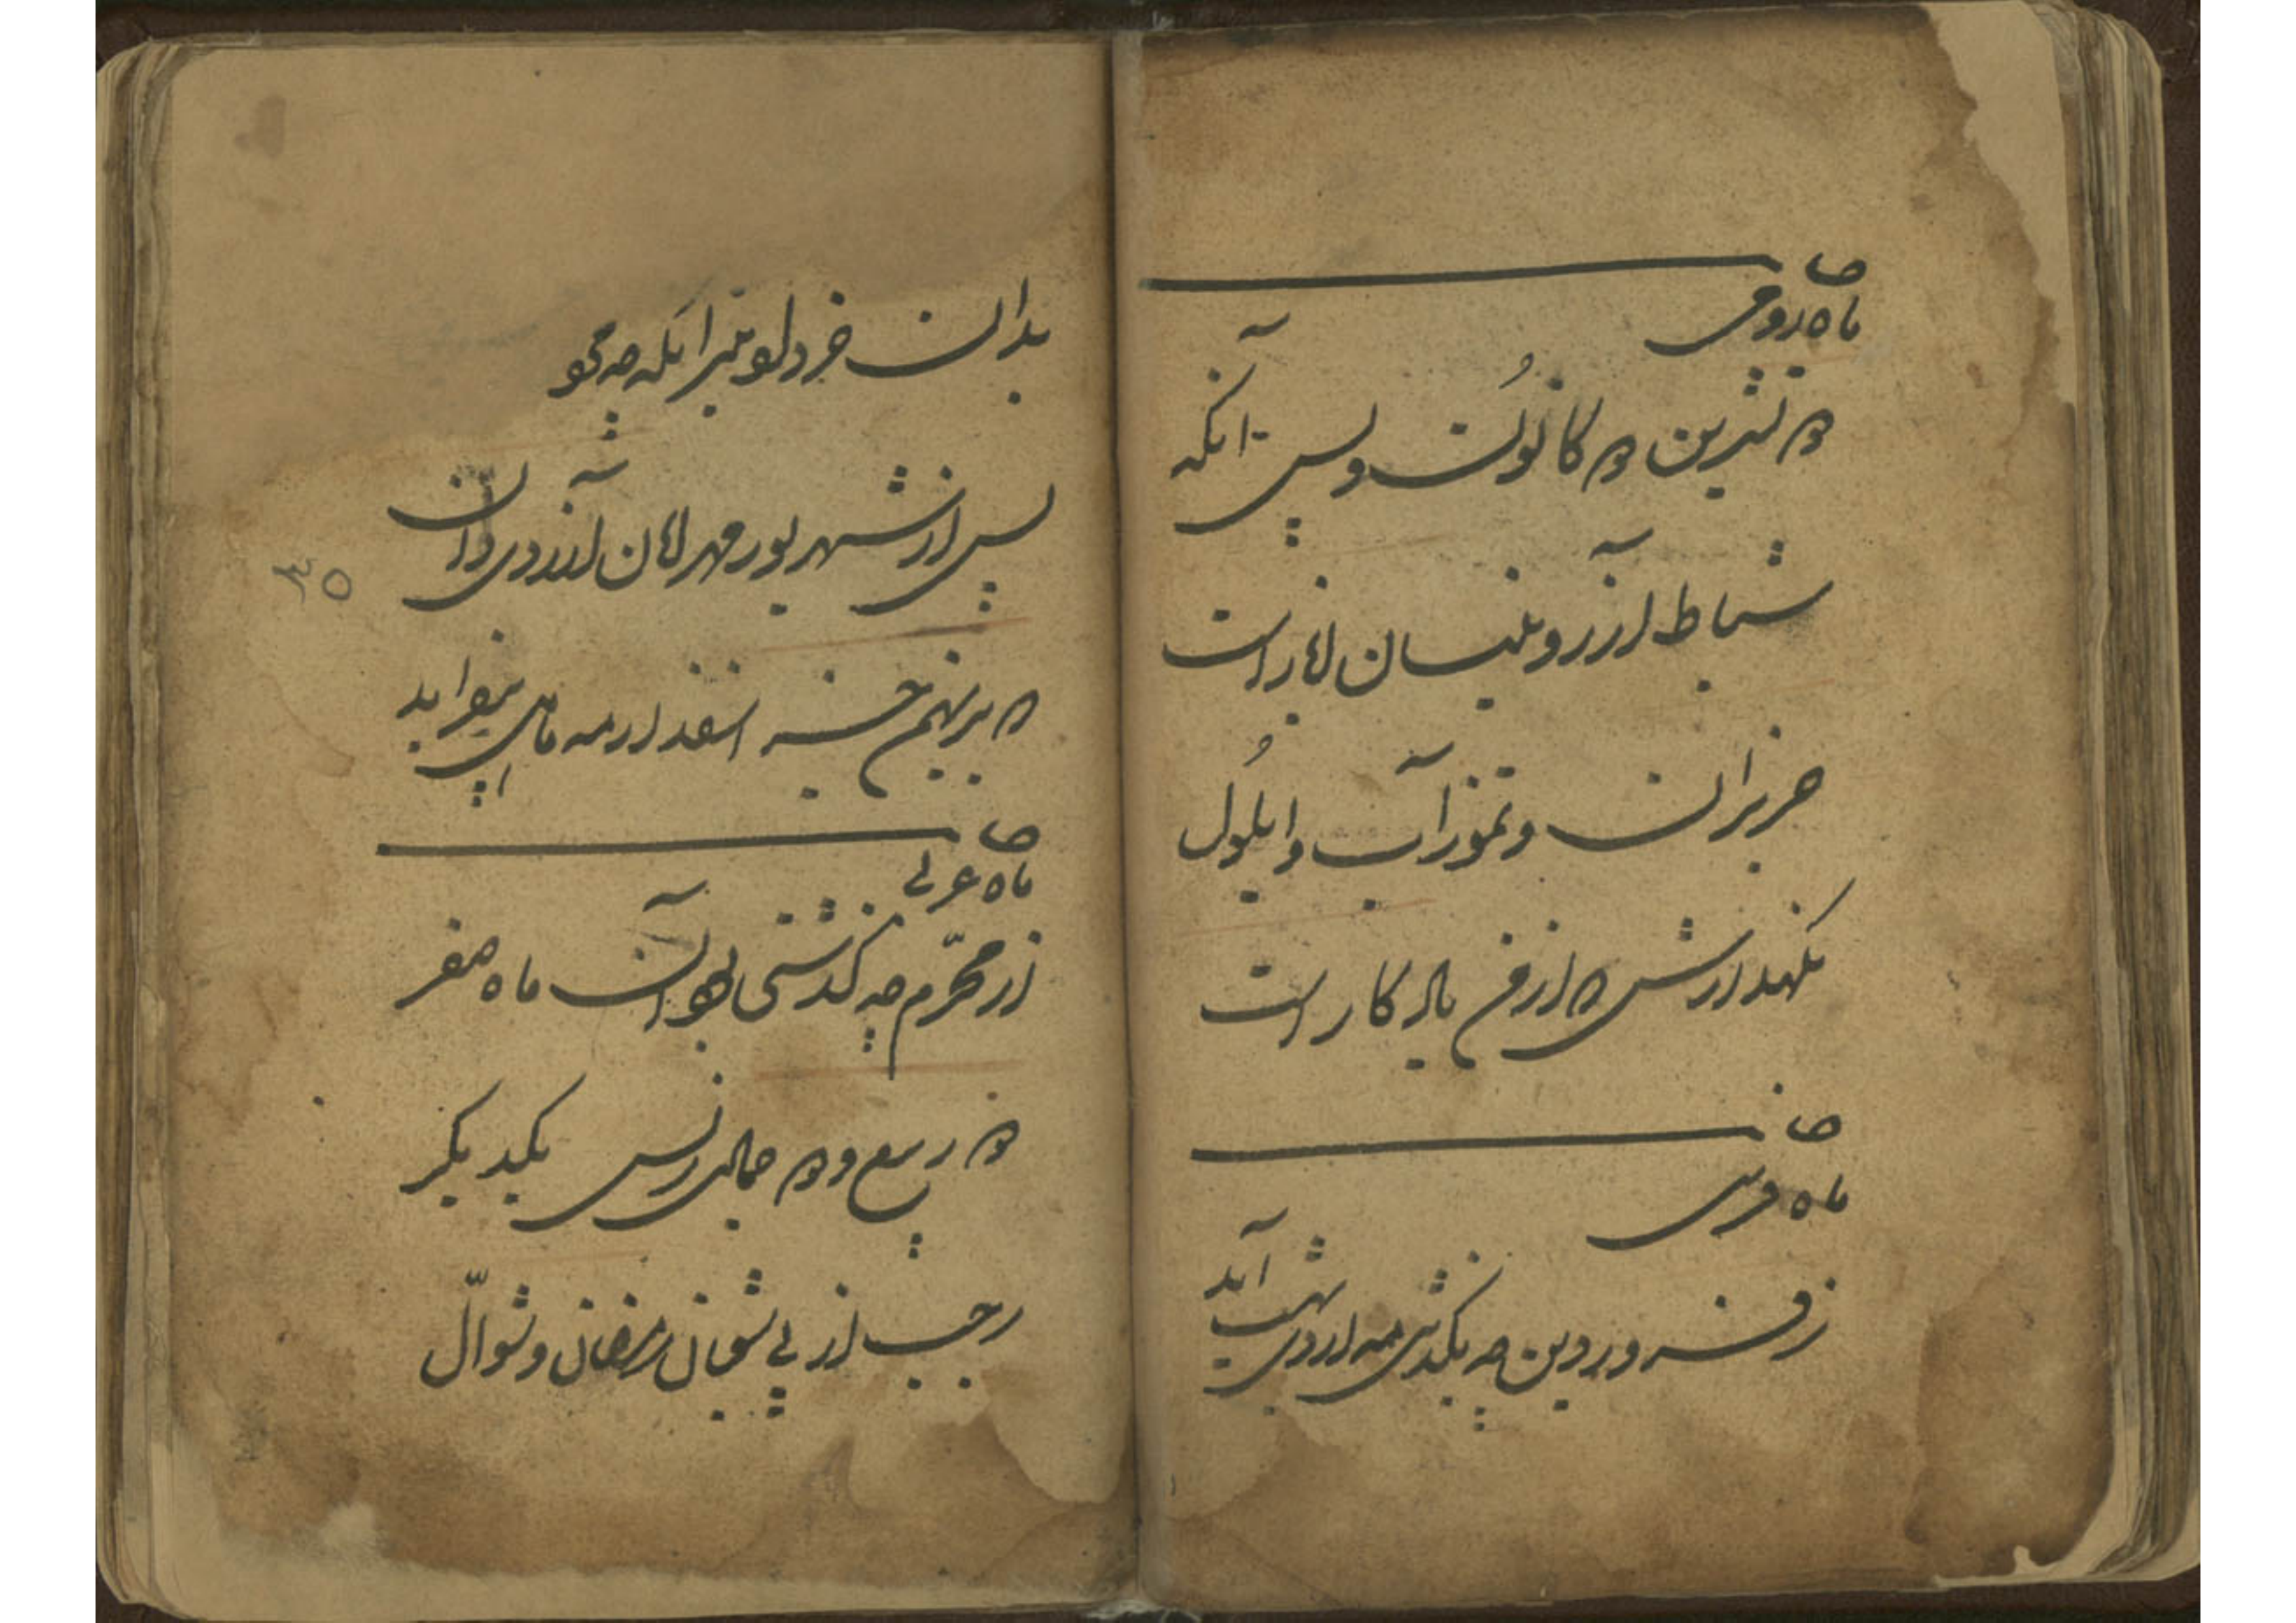 ماه رومی
دو تشرین دو کانون و پس آنکه
شباط آذر و نیسان ایار است
حزیران و تموز آب و ایلول
نگهدارش که از من یادگار است
ماه فرسی
ز فروردین چه بگذشتی مه اردی بهشت آید
بدان خرداد و تیر آنکه چه
پس از شهریور و مهر ابان آذر و دی دان
که بر بهمن جز اسفندارمه ماهی نیفزاید
ماه عربی
ز محرم چه گذشتی بود آن ماه صفر
دو ربیع و دو جمادی ز پس یکدیگر
رجب از پی شعبان رمضان و شوال
۳۵